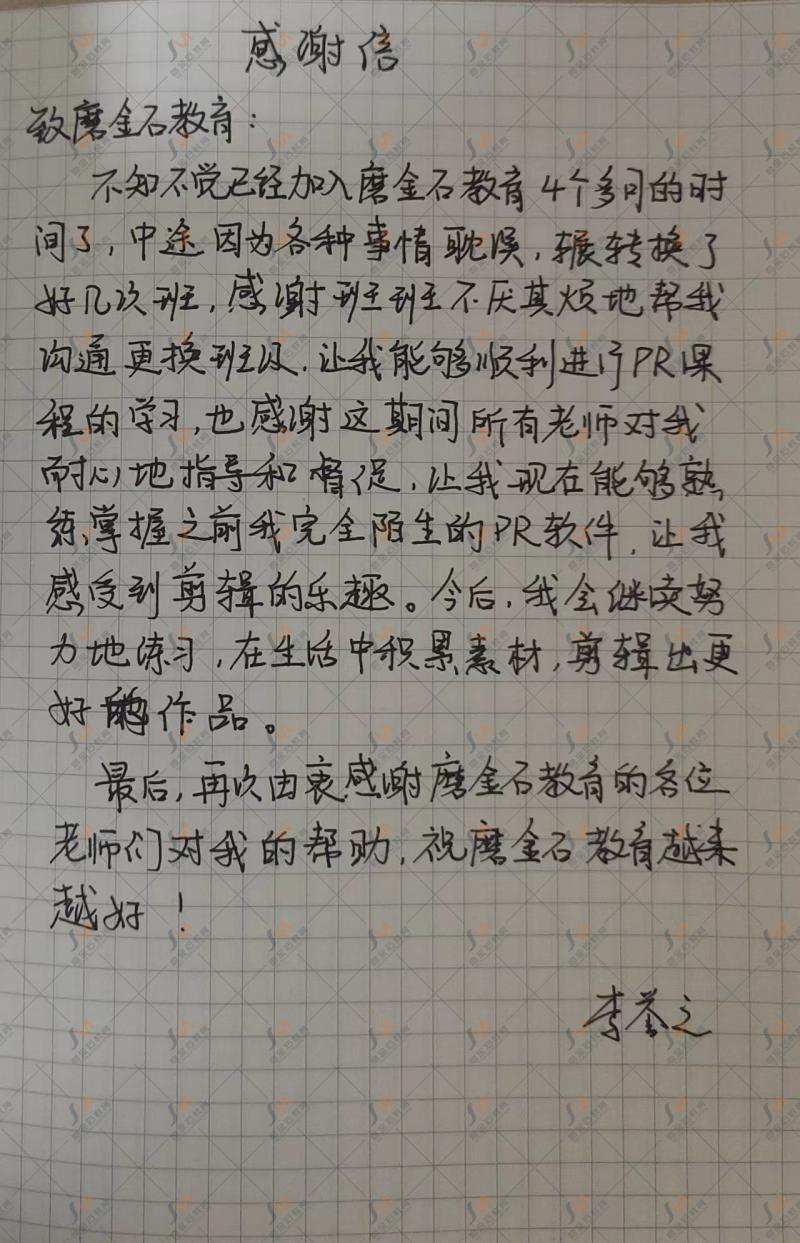 感谢信
致磨金石教育：
不知不觉已经加入磨金石教育4个多月的时
间了，中途因为各种事情耽误，辗转换了
好几次班，感谢班主班主不厌其烦地帮我
沟通更换班级，让我能够顺利进行PR课
程的学习，也感谢这期间所有老师对我
耐心地指导和督促，让我现在能够熟
练掌握之前我完全陌生的PR软件，让我
感受到剪辑的乐趣。今后，我会继续努
力地练习，在生活中积累素材，剪辑出更
好的作品。
最后，再次由衷感谢磨金石教育的各位
老师们对我的帮助，祝磨金石教育越来
越好！
李誉之